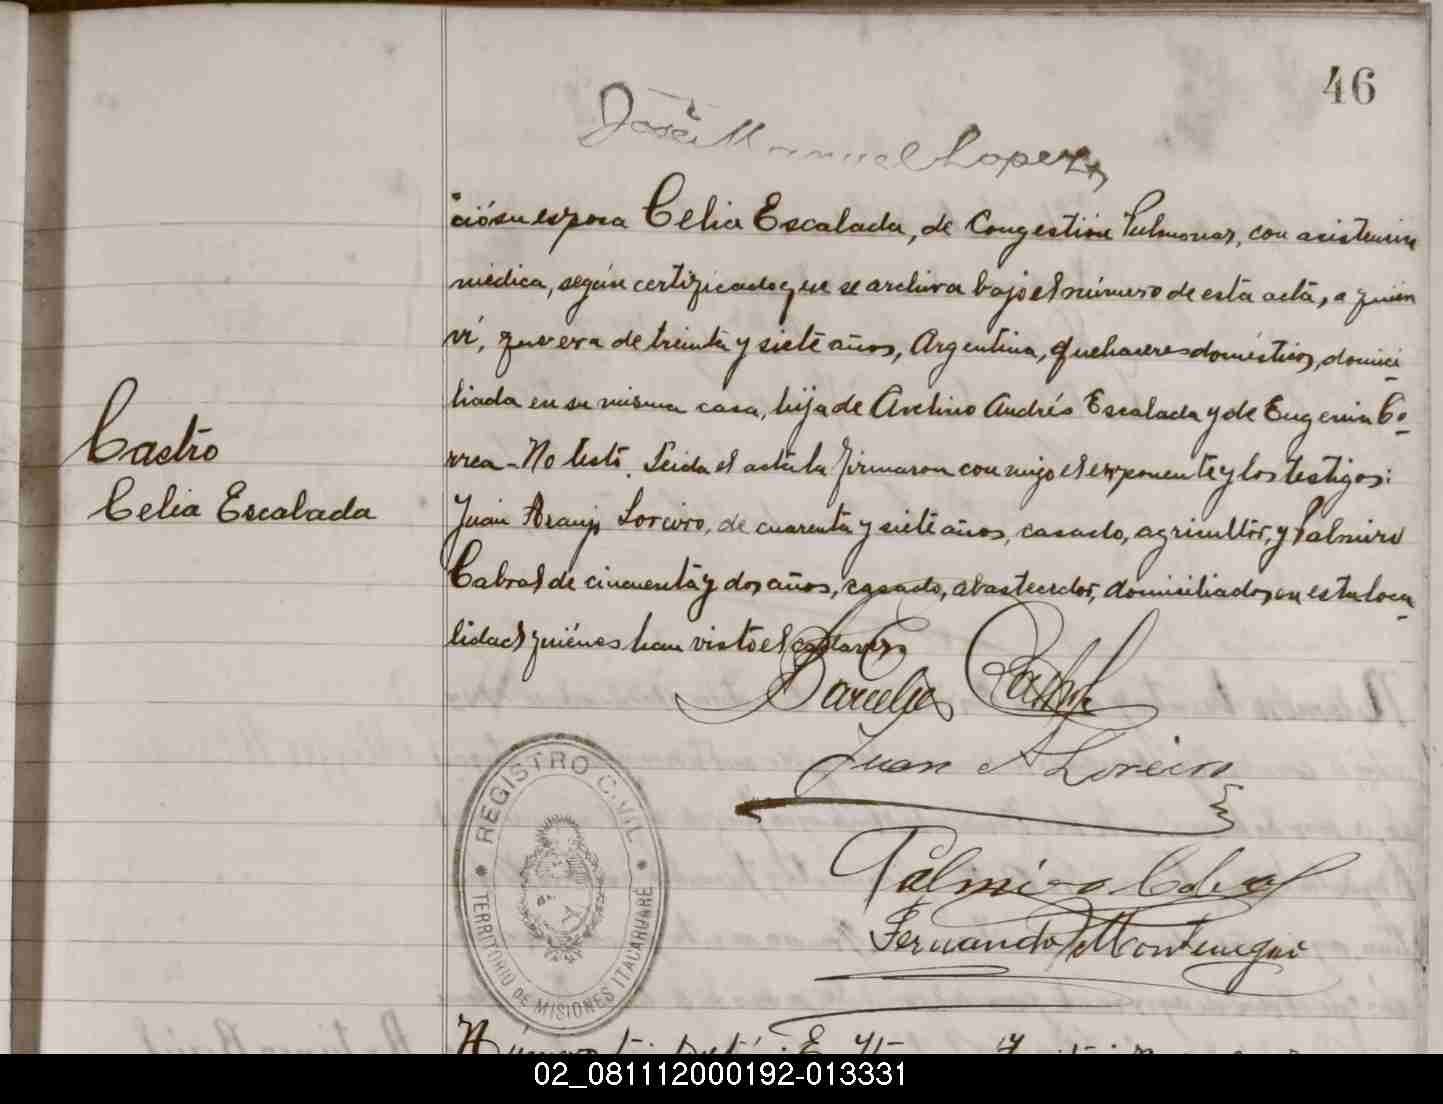 46
José Manuel Lopez
ció su esposa Celia Escalada, de Congestión Pulmonar, con asistencia
médica, según certificado que se archiva bajo el número de esta acta, a quien
ví, que era de treinta y siete años, Argentina, quehaceres domésticos, domici-
liada en su misma casa, hija de Avelino Andrés Escalada y de Eugenia Co-
rrea - No testó. Leida el acta la firmaron con migo el exponente y los testigos:
Castro
Celia Escalada
Juan Araujo Loreiro, de cuarenta y siete años, casado, agricultor, y Palmiro
Cabral de cincuenta y dos años, casado, abastecedor, domiciliados en esta loca-
lidad quiénes han visto el cadaver
Juan A Loreiro
Palmiro Cabral
Fernando Montenegro
REGISTRO CIVIL
TERRITORIO DE MISIONES ITACARUARÉ
02_081112000192-013331